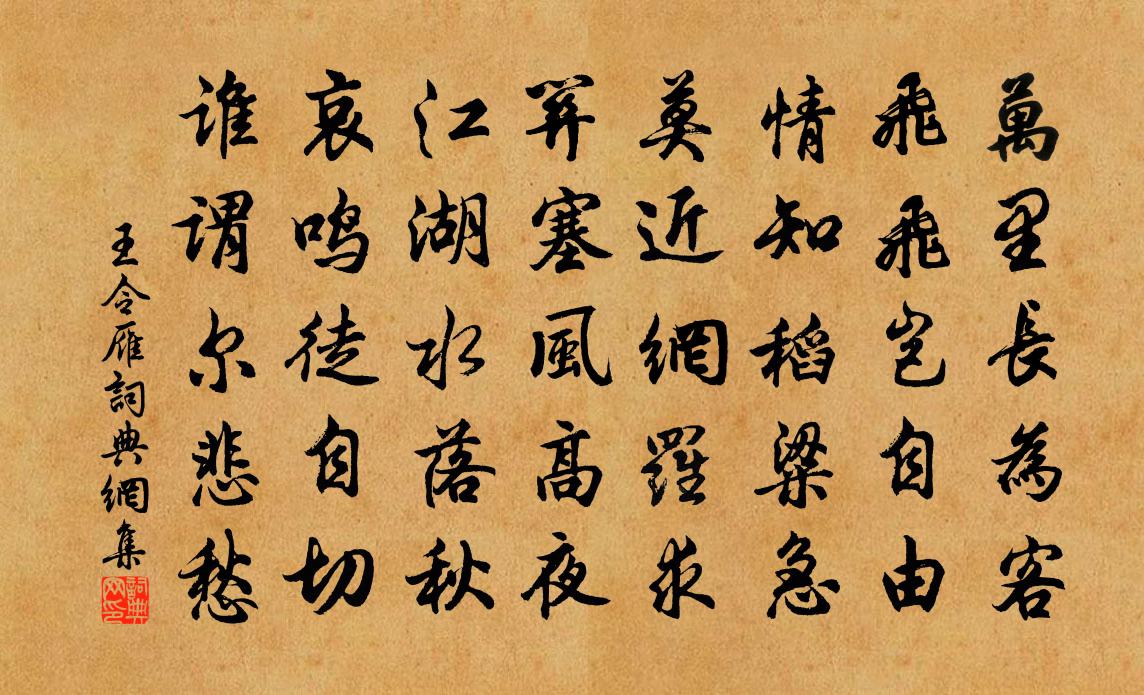 萬里長為客
飛飛豈自由
情知稻粱急
莫近網羅求
關塞風高夜
江湖水落秋
哀鳴徒自切
誰謂尔悲愁
王令雁詞典網集
詞典网印